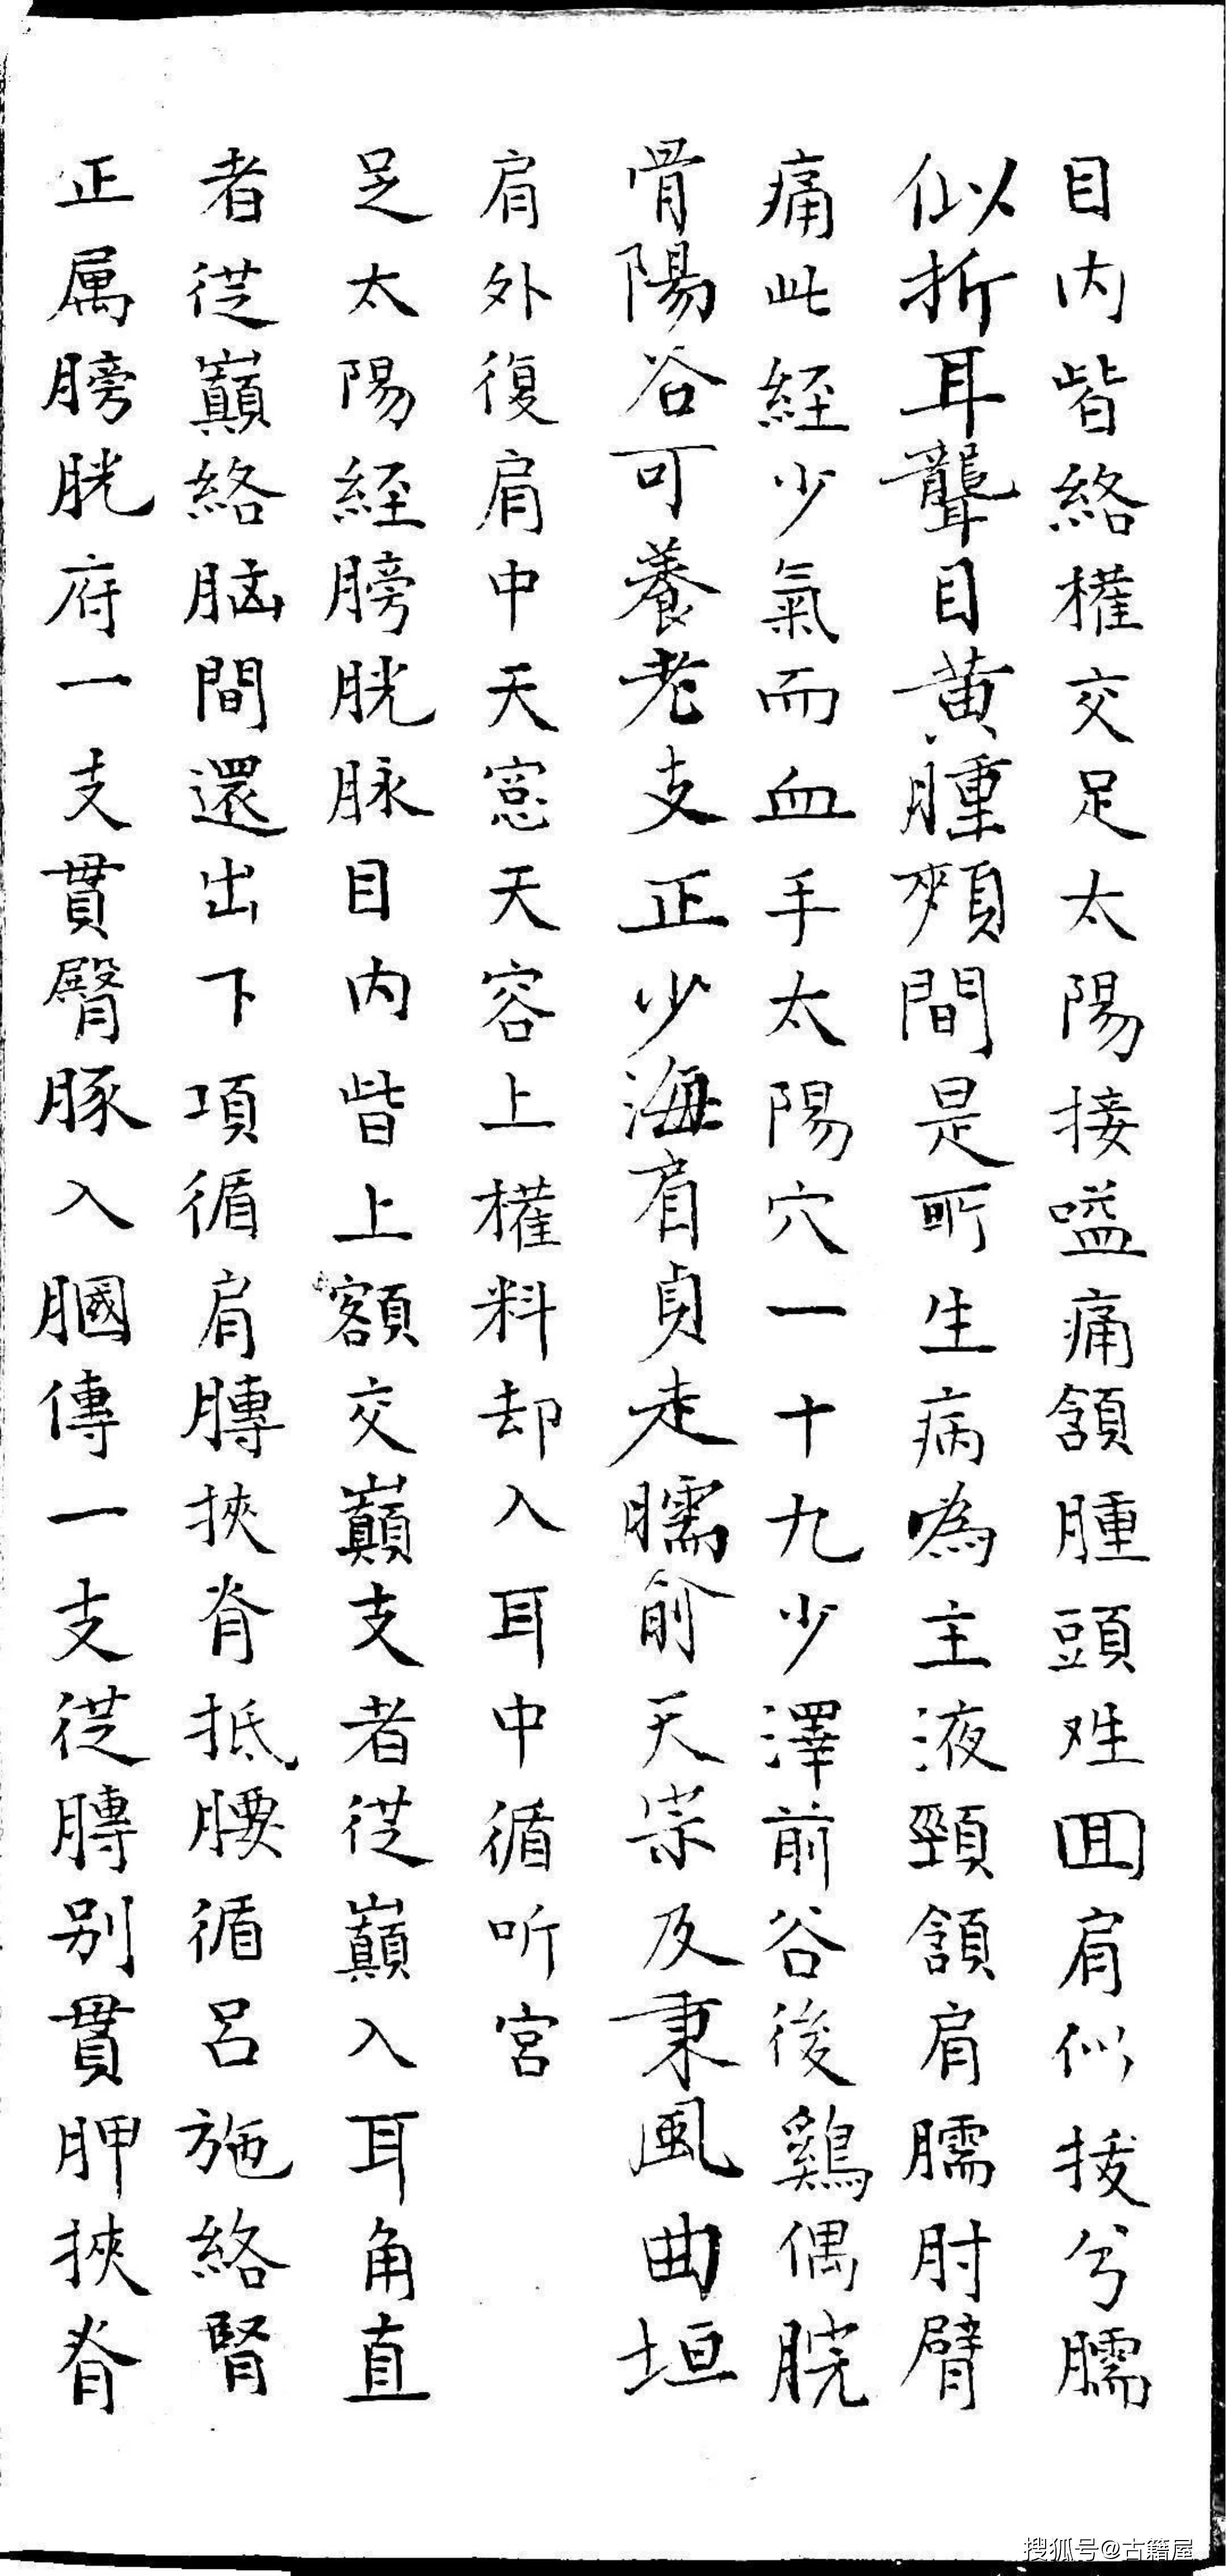 目内眥絡權交足太陽接嗌痛頷腫頭难囬肩似拔兮臑
似折耳聾目黄腫頰間是所生病為主液頸頷肩臑肘臂
痛此經少氣而血手太陽穴一十九少澤前谷後鷄偶腕
骨陽谷可養老支正少海肩貞走臑俞天崇及秉風曲垣
肩外復肩中天窓天容上權料却入耳中循听宮
足太陽経膀胱脉目内眥上額交巔支者從巔入耳角直
者從巔絡脑間還出下項循肩膊挾脊抵腰循呂施絡腎
正属膀胱府一支貫臀豚入膕傳一支從膊别貫胛挾脊
搜狐号@古籍屋